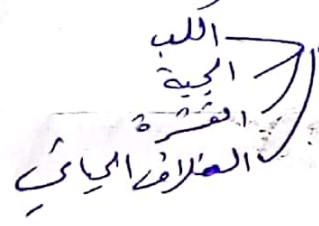 اللب
الجبة
القشرة
الغلاف الحياتي